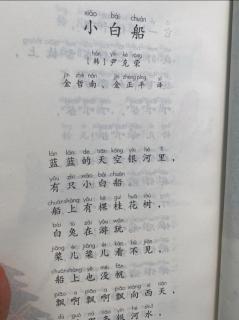 xiǎo bái chuán
小白船
[韩] 尹克荣
金哲南、金正平 译
lán lán de tiān kōng yín hé lǐ
蓝蓝的天空银河里，
yǒu zhī xiǎo bái chuán
有只小白船
chuán shàng yǒu kē guì huā shù
船上有棵桂花树，
bái tù zài yóu wán
白兔在游玩
jiǎng ér jiǎng ér kàn bú jiàn
桨儿桨儿看不见，
chuán shàng yě méi fān
船上也没帆
piāo a piāo a piāo xiàng xī tiān
飘啊飘啊飘向西天，
银河水，